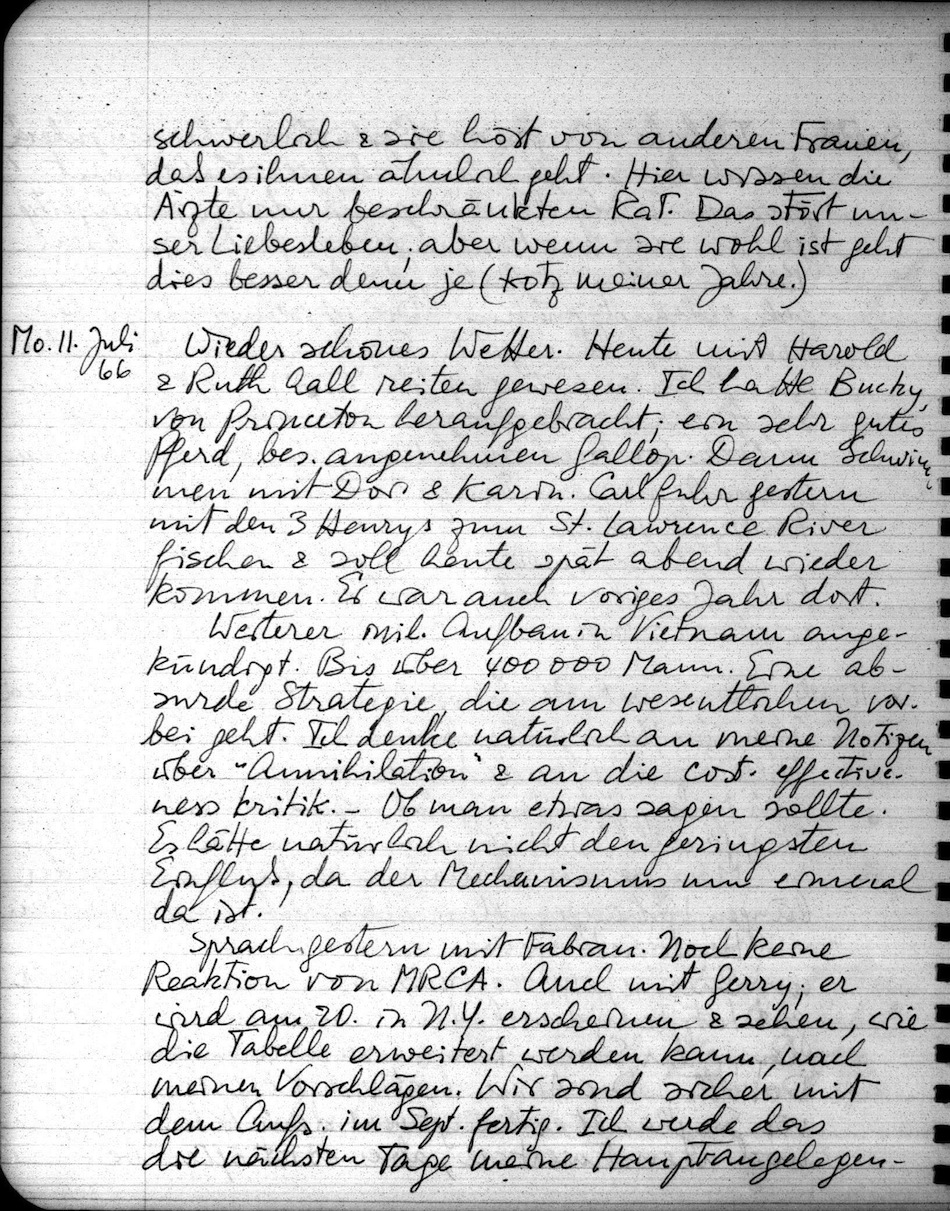 schwerlich & sie hört von anderen Frauen,
daß es ihnen ähnlich geht. Hier wissen die
Ärzte nur beschränkten Rat. Das stört un-
ser Liebesleben; aber wenn sie wohl ist geht
dies besser denn je (trotz meiner Jahre.)
Mo. 11. Juli
66
Wieder schönes Wetter. Heute mit Harold
& Ruth Gall reiten gewesen. Ich hatte Bucky,
von Princeton heraufgebracht; ein sehr gutes
Pferd, bes. angenehmen Gallop. Dann Schwim-
men mit Dor. & Karin. Carl fuhr gestern
mit den 3 Henrys zum St. Lawrence River
fischen & soll heute spät abend wieder
kommen. Er war auch voriges Jahr dort.
Weiterer mil. Aufbau in Vietnam ange-
kündigt. Bis über 400 000 Mann. Eine ab-
surde Strategie, die am wesentlichen vor-
bei geht. Ich denke natürlich an meine Notizen
über "Annihilation" & an die cost-effective-
ness kritik. – Ob man etwas sagen sollte.
Es hätte natürlich nicht den geringsten
Einfluß, da der Mechanismus nun einmal
da ist.
Sprach gestern mit Fabian. Noch keine
Reaktion von MRCA. Auch mit Gerry; er
wird am 20. in N.Y. erscheinen & sehen, wie
die Tabelle erweitert werden kann, nach
meinen Vorschlägen. Wir sind sicher mit
dem Aufs. im Sept. fertig. Ich werde das
die nächsten Tage meine Hauptangelegen-